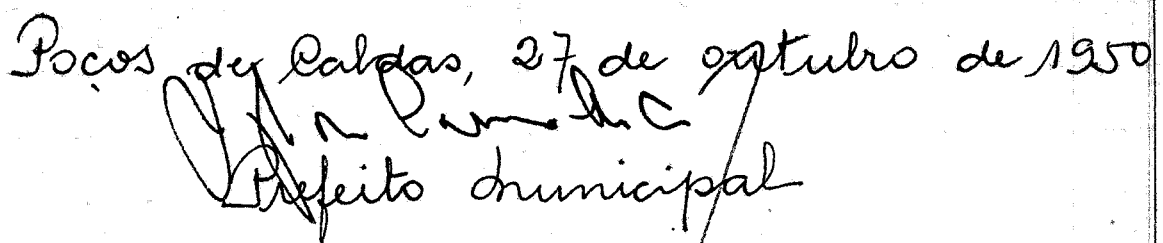 Poços de Caldas, 27 de outubro de 1950
Prefeito Municipal